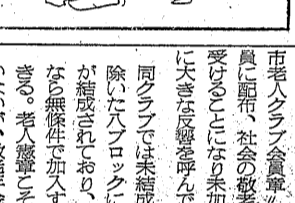 市老人クラブ会員章〝
員に配布、社会の敬老
受けることになり未加
に大きな反響を呼んで
同クラブでは未結成
除いた八ブロックに
が結成されており、
なら無條件で加入す
きる。老人憲章こそ